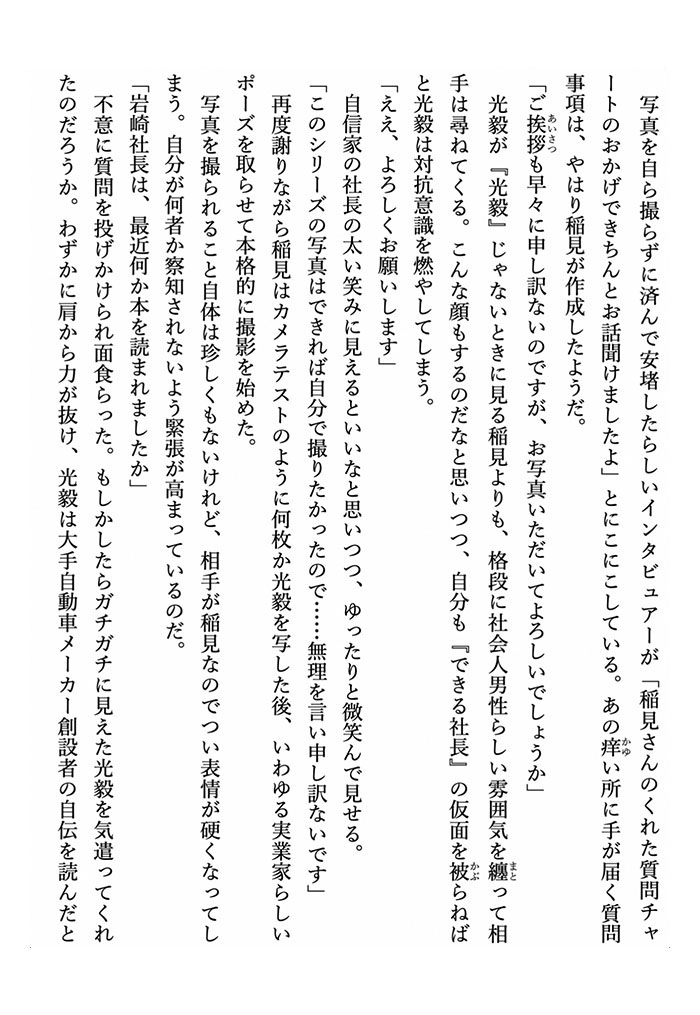 写真を自ら撮らずに済んで安堵したらしいインタビュアーが「稲見さんのくれた質問チャ
ートのおかげできちんとお話聞けましたよ」とにこにこしている。あの痒い所に手が届く質問
事項は、やはり稲見が作成したようだ。
「ご挨拶も早々に申し訳ないのですが、お写真いただいてよろしいでしょうか」
　光毅が『光毅』じゃないときに見る稲見よりも、格段に社会人男性らしい雰囲気を纏って相
手は尋ねてくる。こんな顔もするのだなと思いつつ、自分も『できる社長』の仮面を被らねば
と光毅は対抗意識を燃やしてしまう。
「ええ、よろしくお願いします」
　自信家の社長の太い笑みに見えるといいなと思いつつ、ゆったりと微笑んで見せる。
「このシリーズの写真はできれば自分で撮りたかったので……無理を言い申し訳ないです」
　再度謝りながら稲見はカメラテストのように何枚か光毅を写した後、いわゆる実業家らしい
ポーズを取らせて本格的に撮影を始めた。
　写真を撮られること自体は珍しくもないけれど、相手が稲見なのでつい表情が硬くなってし
まう。自分が何者か察知されないよう緊張が高まっているのだ。
「岩崎社長は、最近何か本を読まれましたか」
　不意に質問を投げかけられ面食らった。もしかしたらガチガチに見えた光毅を気遣ってくれ
たのだろうか。わずかに肩から力が抜け、光毅は大手自動車メーカー創設者の自伝を読んだと